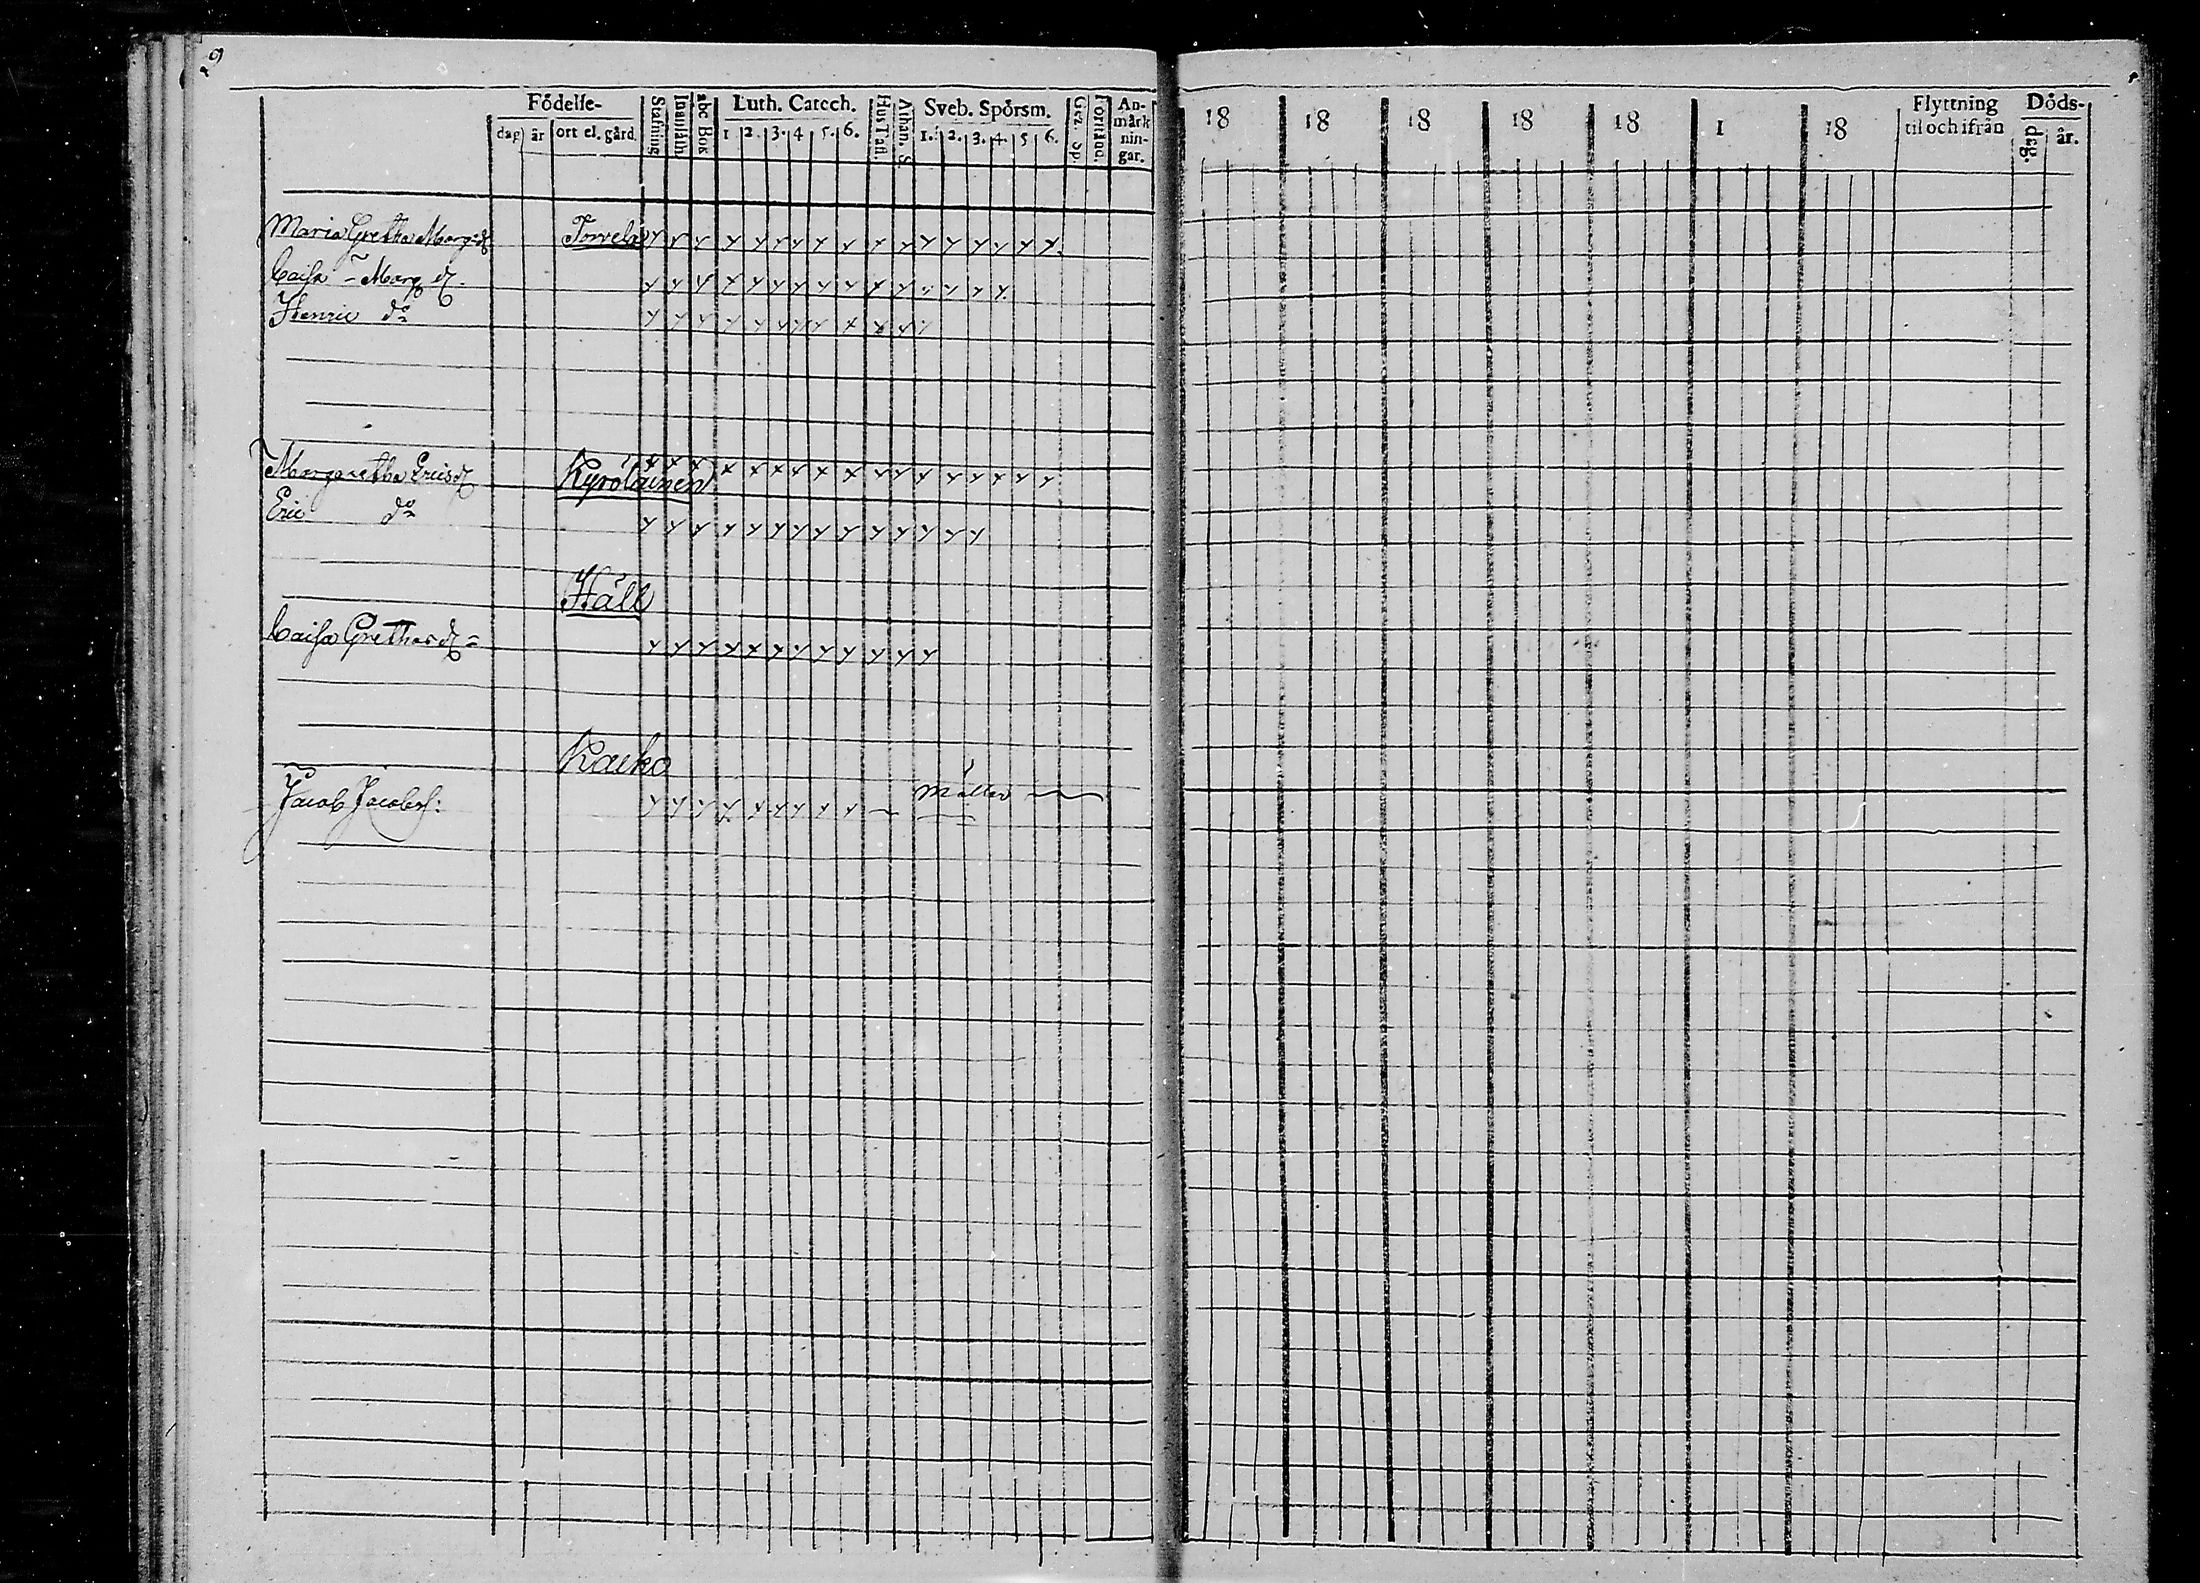 9
Födelse-
dag år ort el. gård
Stafning
Innanläsn
abc Bok
Luth. Catech.
1 2. 3. 4 5. 6.
Hus Tafl.
Athan. S.
Sveb. Spörsm.
1. 2. 3. 4. 5 6.
Gez. Sp.
Förstånd.
An-
märk
nin-
gar.
18 18 18 18 18 1 18
Flyttning
til och ifrån
Döds-
dag. år.
Maria Gretha Marg: d
Torvela
Caisa - Marg d.
Henric do
Kyröläinen
Margaretha Ericsd
Eric do
Häll
Caisa Grethasd =
Kaiko
Jacob Jacobss: